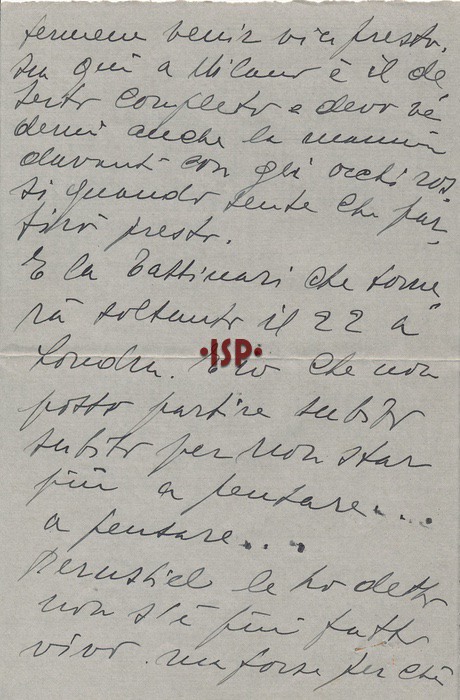 termene venir via presto.
ma qui a Milano è il de
serto completo e devo ve
dermi anche la mamma
davanti con gli occhi ros
si quando sente che par
tirò presto.
E la Battinari che torne
rà soltanto il 22 a
Londra. che non
posso partire subito
subito per non star
più a pensare...
a pensare...
le ho detto
non s'è più fatto
vivo. ma forse perchè
ISP